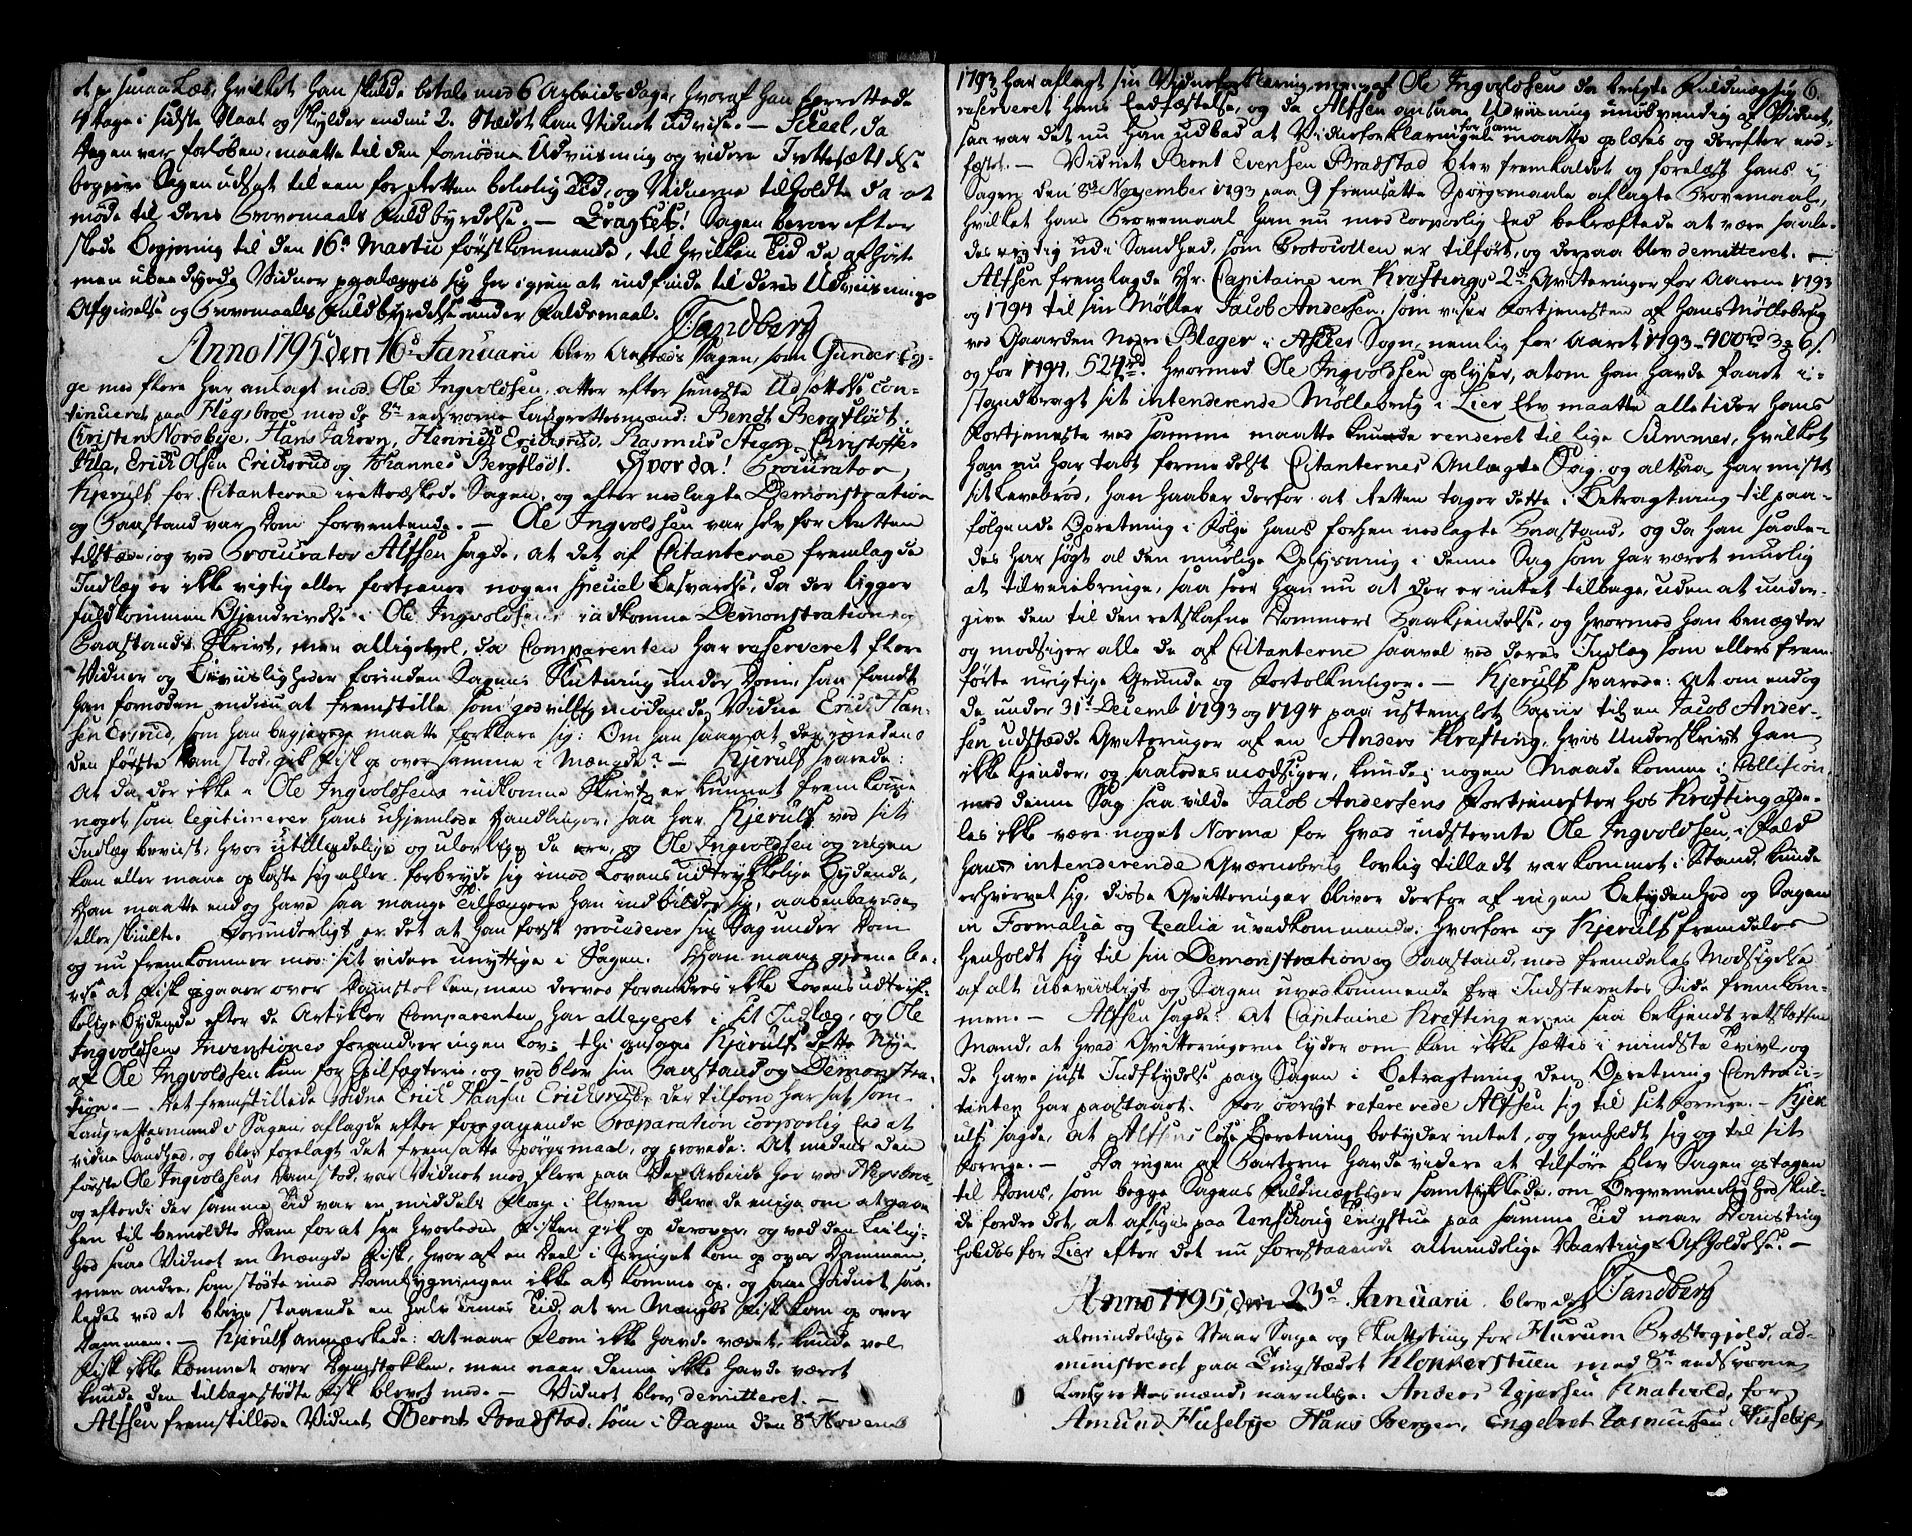 et p smaa Læs, hvilket han skulde betale med 6 Arbeidsdage, hvoraf han forrettede
4 dage i sidste Slaat og skylder endnu 2. Stædet kan Vidnet udvise. — Scheel, da
dagen var forløben, maatte til den fornødne Udviisning og videre Irettesættelse
begjere Sagen udsat til een for Retten beleilig Tid, og Vidnerne tilholdte da at
møde til deres Provemaals Fuldbyrdelse. — Eragtet! Sagen beroer efter
skede Begjering til den 16de Martii førstkommende, til hvilken Tid de afhørte
men ubeedigede Vidner paalægges sig her igjen at indfinde til deres Udviisnings
Afgivelse og Provemaals Fuldbyrdelse under Faldsmaal. Tandberg
Anno 1795 den 16de Januarii blev Aastæds Sagen, som Gunder Eg-
ge med flere har anlagt mod Ole Ingvoldsen, atter efter seneste Udsættelse con-
tinueret paa Hegsbroe med de 8te eedsvorne Laugrettesmænd: Bendt Bergfløde,
Christen Nordbye, Hans Jahren, Henrich Ericksrud, Rasmus Steen, Christoffer
Hla, Erich Olsen Ericksrud og Johannes Bergfløde. Hvorda! Procurator
Kjerulf for Citanterne irettesskede Sagen, og efter nedlagte Demonstration
og Paastand var Dom forventende. — Ole Ingvoldsen var selv for Retten
tilstæde, og ved Procurator Alfsen sagde, at det af Citanterne fremlagde
Indlæg er ikke vigtig eller fortjener nogen speciel Besvarelse, da der ligger
fuldkommen Gjendrivelse i Ole Ingvoldsens indkomne Demonstration og
Paastands Skrivt, men alligevel, da Comparenten har reserveret flere
Vidner og Beviisligheder forinden Sagens Slutning under Dom, saa fandt
han fornøden endnu at fremstille som godvillig mødende Vidne Erich Han-
sen Ersrud, som han begjerede maatte forklare sig: Om han saae at den imedens
den første Damstod, gik Fisk op over samme i Mængde? — Kjerulf svarede:
At da der ikke i Ole Ingvoldsens indkomne Skrivt er kunnet fremkomme
noget som legitimerer hans uhjemlede Handlinger, saa har Kjerulf ved sit
Indlæg beviist, hvor utilladelige og ulovlige de ere, og Ole Ingvoldsen og ingen
kan eller maae opkaste sig eller forbryde sig imod Lovens udtrykkelige Bydende,
Han maatte end og have saa mange Tilhængere han indbilder sig, aabenbarede
eller skiulte. Forunderligt er det at han først procederer sin Sag under Dom
og nu fremkommer med sit videre unyttige i Sagen. Han maae gjerne be-
vise at Fisk opgaaer over Damstokken, men derved forandres ikke Lovens udtryk-
kelige Bydende efter de Artikler Comparenten har allegeret i sit Indlæg, og Ole
Ingvoldsens Inventioner forandrer ingen Lov: thi ansaae Kjerulf dette Nye
af Ole Ingvoldsen kun for Spilfægterie, og ved blev sin Paastand og Demonstra-
tion. — Det fremstillede Vidne Erich Hansen Ericksrud, der tilforn har sat som
Laugrettesmand i Sagen, aflagde efter foregaaende Præparation corporlig Eed at
vidne Sandhed, og blev forelagt det fremsatte Spørgsmaal, og provede: At medens den
første Ole Ingvoldsens Damstod, var Vidnet med flere paa Vej Arbeide her ved Hegsbroe
og efterdi der samme Tid var en middels Flom i Elven bleve de enige om at gaae
hen til bemeldte Dam for at see hvorledes Fisken gik op derover, og ved den Leilig-
hed saae Vidnet en Mængde Fisk, hvor af en Deel i Springet kom op over Dammen,
men andre, som stødte imod Dambygningen ikke at komme op, og saae Vidnet saa-
ledes ved at blive staaende en halv Times Tid, at en Mængde Fisk kom op over
Dammen. — Kjerulf anmærkede: At naar Flom ikke havde været, kunde vel
Fisk ikke kommet over Damstokken, men naar denne ikke havde været
kunde den tilbagestødte Fisk blevet med. — Vidnet blev demitteret. —
Alfsen fremstillede Vidnet Bernt Bradstad, som i Sagen den 8de Novemb
1793 har aflagt sin Vidneforklaring, men af Ole Ingvoldsen da brugte Fuldmægtig 6.
reserveret hans Eedfæstelse, og da Alfsen ansaae Udviisning unødvendig af Vidnet,
saa var det nu han udbad at Vidneforklaringen for ham maatte oplæses og derefter eed-
fæstet. — Vidnet Bernt Evensen Bradstad blev fremkaldet og forelæst hans i
Sagen den 8de November 1793 paa 9 fremsatte Spørgsmaale aflagte Provemaal,
hvilket hans Provemaal han nu med corporlig Eed bekræftede at være saale-
des rigtig udi Sandhed, som Protocollen er tilført, og derpaa blev demitteret. —
Alfsen fremlagde Hr. Capitaine von Kreftings 2de Qvitteringer for Aarene 1793
og 1794 til sin Møller Jacob Andersen, som viser Fortjenesten af hans Møllebrug
ved Gaarden Nedre Bleger i Asker Sogn, nemlig for Aaret 1793 – 400rd 3 – 6 s.
og for 1794, 524rd. Hvormed Ole Ingvoldsen oplyser, at om han havde faaet i-
standbragt sit intenderende Møllebrug i Lier Elv maatte alletider hans
Fortjeneste ved samme maatte kunde renderet til lige Summer, hvilket
han nu har tabt formedelst Citanternes Anlagde Sag, og altsaa har mistet
sit Levebrød, han haaber derfor at Retten tager dette i Betragtning til paa-
følgende Opretning i Følge hans forhen nedlagte Paastand, og da han saale-
des har søgt al den muelige Oplysning i denne Sag som har været muelig
at tilveiebringe, saa seer han nu at der er intet tilbage, uden at under-
give den til den retskafne Dommers Paakjendelse, og hvormed han benægter
og modsiger alle de af Citanterne saavel ved deres Indlæg som ellers frem-
førte urigtige Grunde og Fortolkninger. — Kjerulf svarede: At om endog
de under 31te Decemb 1793 og 1794 paa ustemplet Papiir til en Jacob Ander-
sen udstædde Qvitteringer af en Anders Krefting, hvis Underskrivt han
ikke kjender, og saaledes modsiger, kunde i nogen Maade komme i Collision
med denne Sag saa vilde Jacob Andersens Fortjenester hos Krefting alde-
les ikke være noget Norma for hvad indstevnte Ole Ingvoldsen, i Fald
hans intenderende Qværnebrug lovlig tilladt var kommet i Stand, kunde
erhvervet sig, disse Qvitteringer bliver derfor af ingen Betydenhed og Sagen
in Formalia og Realia uvedkommende. Hvorfore og Kjerulf fremdeles
henholdt sig til sin Demonstration og Paastand, med fremdeles Modsigelse
af alt ubeviisligt og Sagen uvedkommende fra Indstevntes Side fremkom-
men. — Alfsen sagde: At Capitaine Krefting er en saa bekjendt retskaffen
Mand, at hvad Qvitteringerne lyder om kan ikke sættes i mindste Tvivl, og
de have just Indflydelse paa Sagen i Betragtning den Opretning Contraci-
tanten har paastaaet. For øvrigt refererede Alfsen sig til sit forrige. — Kjer
ulf sagde, at Alfsens løse Beretning betyder intet, og henholdt sig og til sit
forrige. — Da ingen af Parterne havde videre at tilføre blev Sagen optagen
til Doms, som begge Sagens Fuldmægtiger samtykkede, om Beqvemmelighed skul-
de fordre det, at afsiges paa Renschoug Tingstue paa samme Tid naar Domsting
holdes for Lier efter det nu forestaaende almindelige Vaartings Afholdelse. —
Tandberg
Anno 1795 den 23de Januarii blev det
almindelige Vaar Sage og Skatteting for Hurum Præstegjeld, ad-
ministreret paa Tingstædet Klokkerstuen med 8te eedsvorne
Laugrettesmænd, navnlig: Anders Kjersen Knatvold, for
Amund Husebye Hans Berger, Engebret Rasmussen Husebye